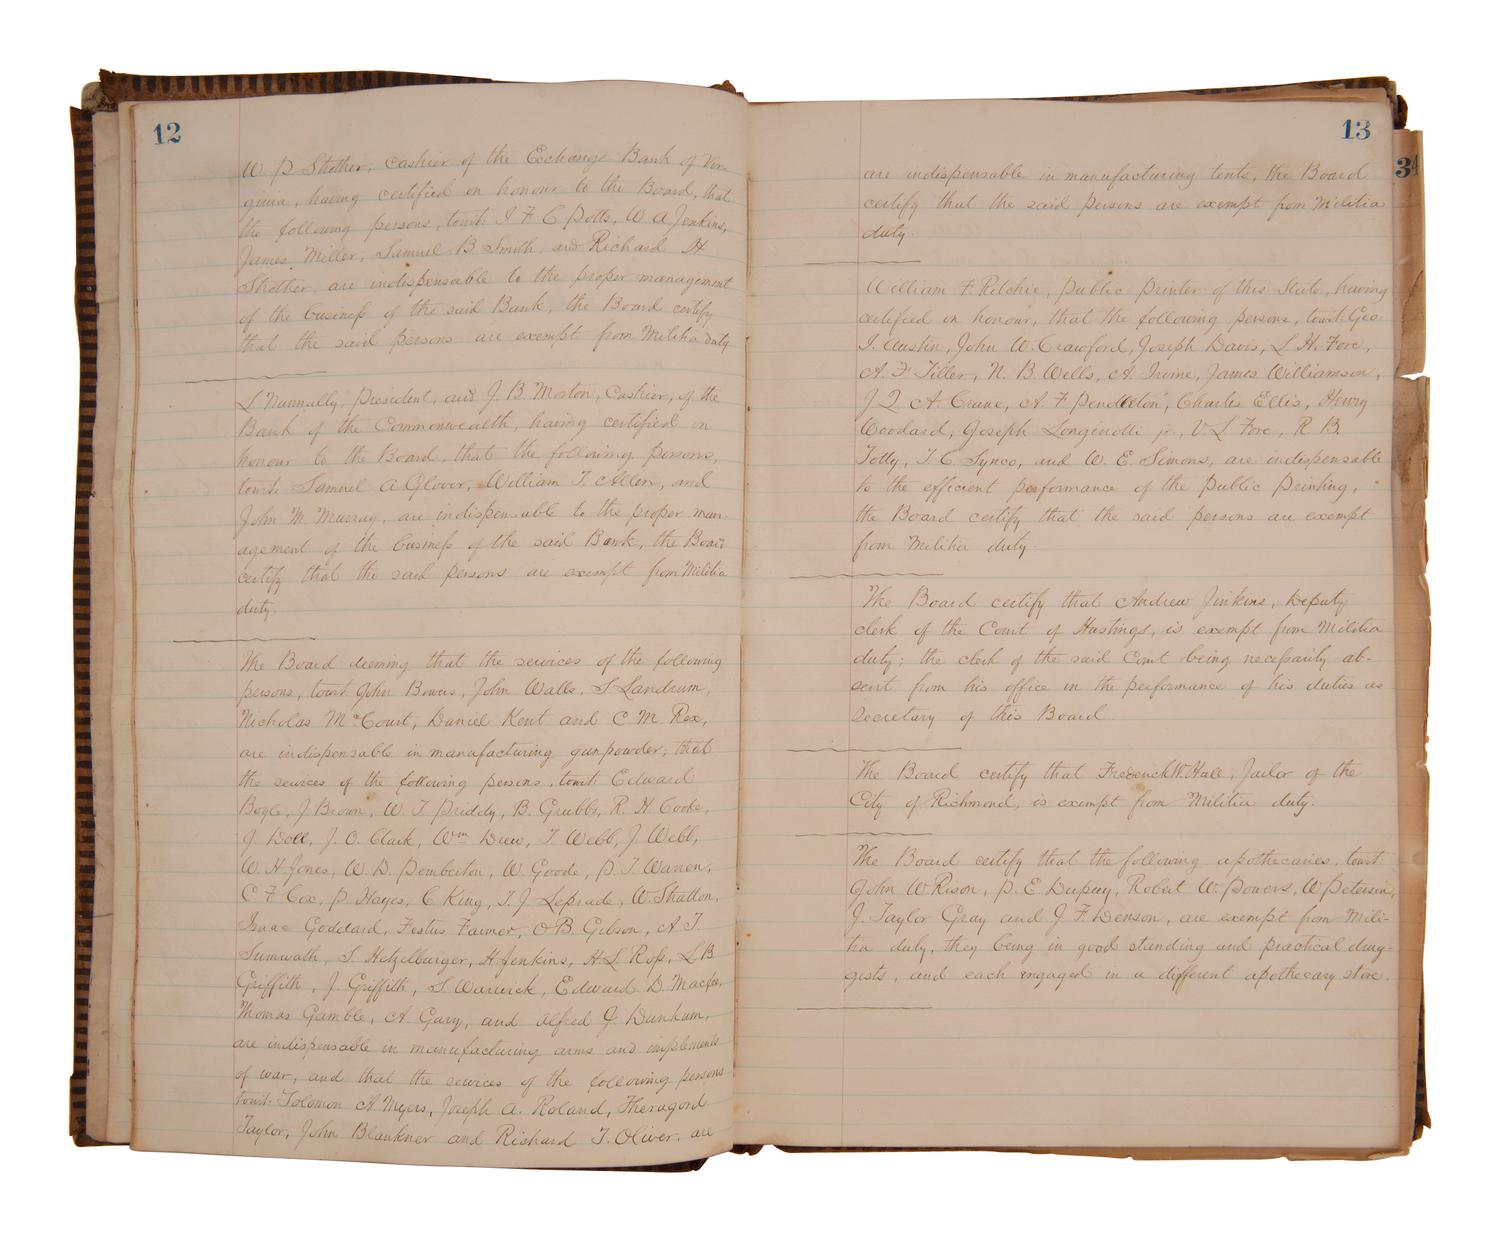 12
W P Strother, Cashier of the Exchange Bank of Vir-
ginia, having certified on honour to the Board, that
the following persons, towit: I F C Potts, W. A Jenkins,
James Miller, Samuel B Smith and Richard H
Strother are indispensable to the proper management
of the business of the said Bank, the Board certify
that the said persons are exempt from Militia duty
S Nunnally, President, and J. B Morton, Cashier, of the
Bank of the Commonwealth, having certified on
honour to the Board, that the following persons,
towit: Samuel A Glover, William T. Allen, and
John M. Murray, are indispensable to the proper man-
agement of the business of the said Bank, the Board
certify that the said persons are exempt from Militia
duty.
The Board deeming that the services of the following
persons, towit: John Bowers, John Walls, S Landrum,
Nicholas McCourt, Daniel Kent and C M Rex,
are indispensable in manufacturing gunpowder; that
the services of the following persons, towit: Edward
Bogle, J Brown, W. T Priddy, B. Grubbs, R. H Cooke,
J Doll, J. O. Clark, Wm Drew, T Webb, J. Webb,
W. H Jones, W D. Pemberton, W Goode, P. T Warren,
C F Cox, P Hayes, C King, T. J Leprade, W. Stratton,
Isaac Goddard, Festus Farmer, O B. Gibson, A T.
Sumwath, S Hetzelburger, H Jenkins, H L Ross, L B
Griffith, J. Griffith, S Warwick, Edward D. Macfee,
Thomas Gamble, A Gary, and Alfred J Dunkum,
are indispensable in manufacturing arms and implements
of war, and that the services of the following persons
towit: Solomon A Myers, Joseph A. Roland, Theragord
Taylor, John Blankner and Richard T. Oliver, are
13
34
are indispensable in manufacturing tents, the Board
certify that the said persons are exempt from Militia
duty.
William F. Ritchie, public printer of this State, having
certified on honour, that the following persons, towit: Geo.
I. Austin, John W. Crawford, Joseph Davis, L H. Fore,
A. F Tiller, N. B Wells, A. Irvine, James Williamson,
J Q. A. Crane, A. F Pendleton, Charles Ellis, Henry
Woodard, Joseph Longinotti jr., V L Fore, R B.
Totty, T C Synco, and W. E. Simons, are indispensable
to the efficient performance of the Public Printing,
the Board certify that the said persons are exempt
from Militia duty.
The Board certify that Andrew Jenkins, Deputy
clerk of the Court of Hustings, is exempt from Militia
duty; the clerk of the said Court being necessarily ab-
sent from his office in the performance of his duties as
Secretary of this Board.
The Board certify that Frederick W. Hall, Jailor of the
City of Richmond, is exempt from Militia duty.
The Board certify that the following apothecaries, towit:
John W. Rison, P. E Dupuy, Robert W. Powers, W. Peterson,
J. Taylor Gray and J. F Denson, are exempt from Mili-
tia duty, they being in good standing and practical drug-
gists, and each engaged in a different apothecary store.